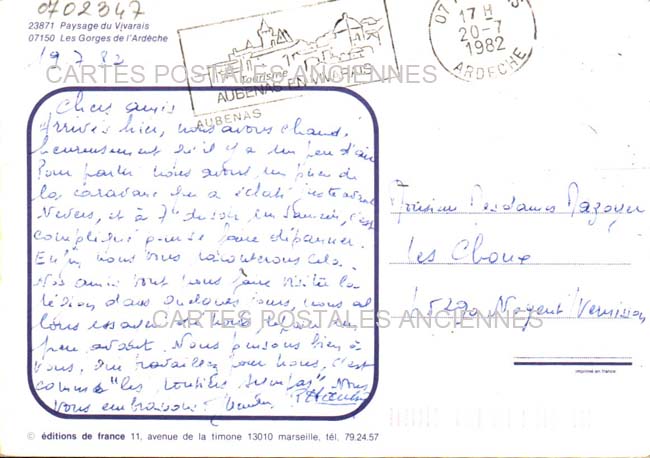 0702347
23871 Paysage du Vivarais
07150 Les Gorges de l'Ardèche
19 7 82
Tourisme
AUBENAS EN VIVARAIS
AUBENAS
17 H
20-7
1982
ARDECHE
CARTES POSTALES ANCIENNES
Chers amis
Arrivés hier, nous avons chaud,
heureusement qu'il y a un peu d'air
Pour partir nous avons un pneu de
la caravane qui a éclaté juste avant
Nevers, et à 7h du soir un samedi, c'est
compliqué pour se faire dépanner.
Enfin nous vous raconterons cela.
Nos amis vont nous faire visiter la
région dans quelques jours, nous al
lons essayer de nous reposer un
peu avant. Nous pensons bien à
vous. travaillez pour nous, c'est
comme "les routiers sympas". Nous
vous embrassons
Monsieur Mesdames Mazoyer
Les Choux
45290 Nogent Vernisson
CARTES POSTALES ANCIENNES
imprimé en france
© éditions de france 11, avenue de la timone 13010 marseille, tél. 79.24.57